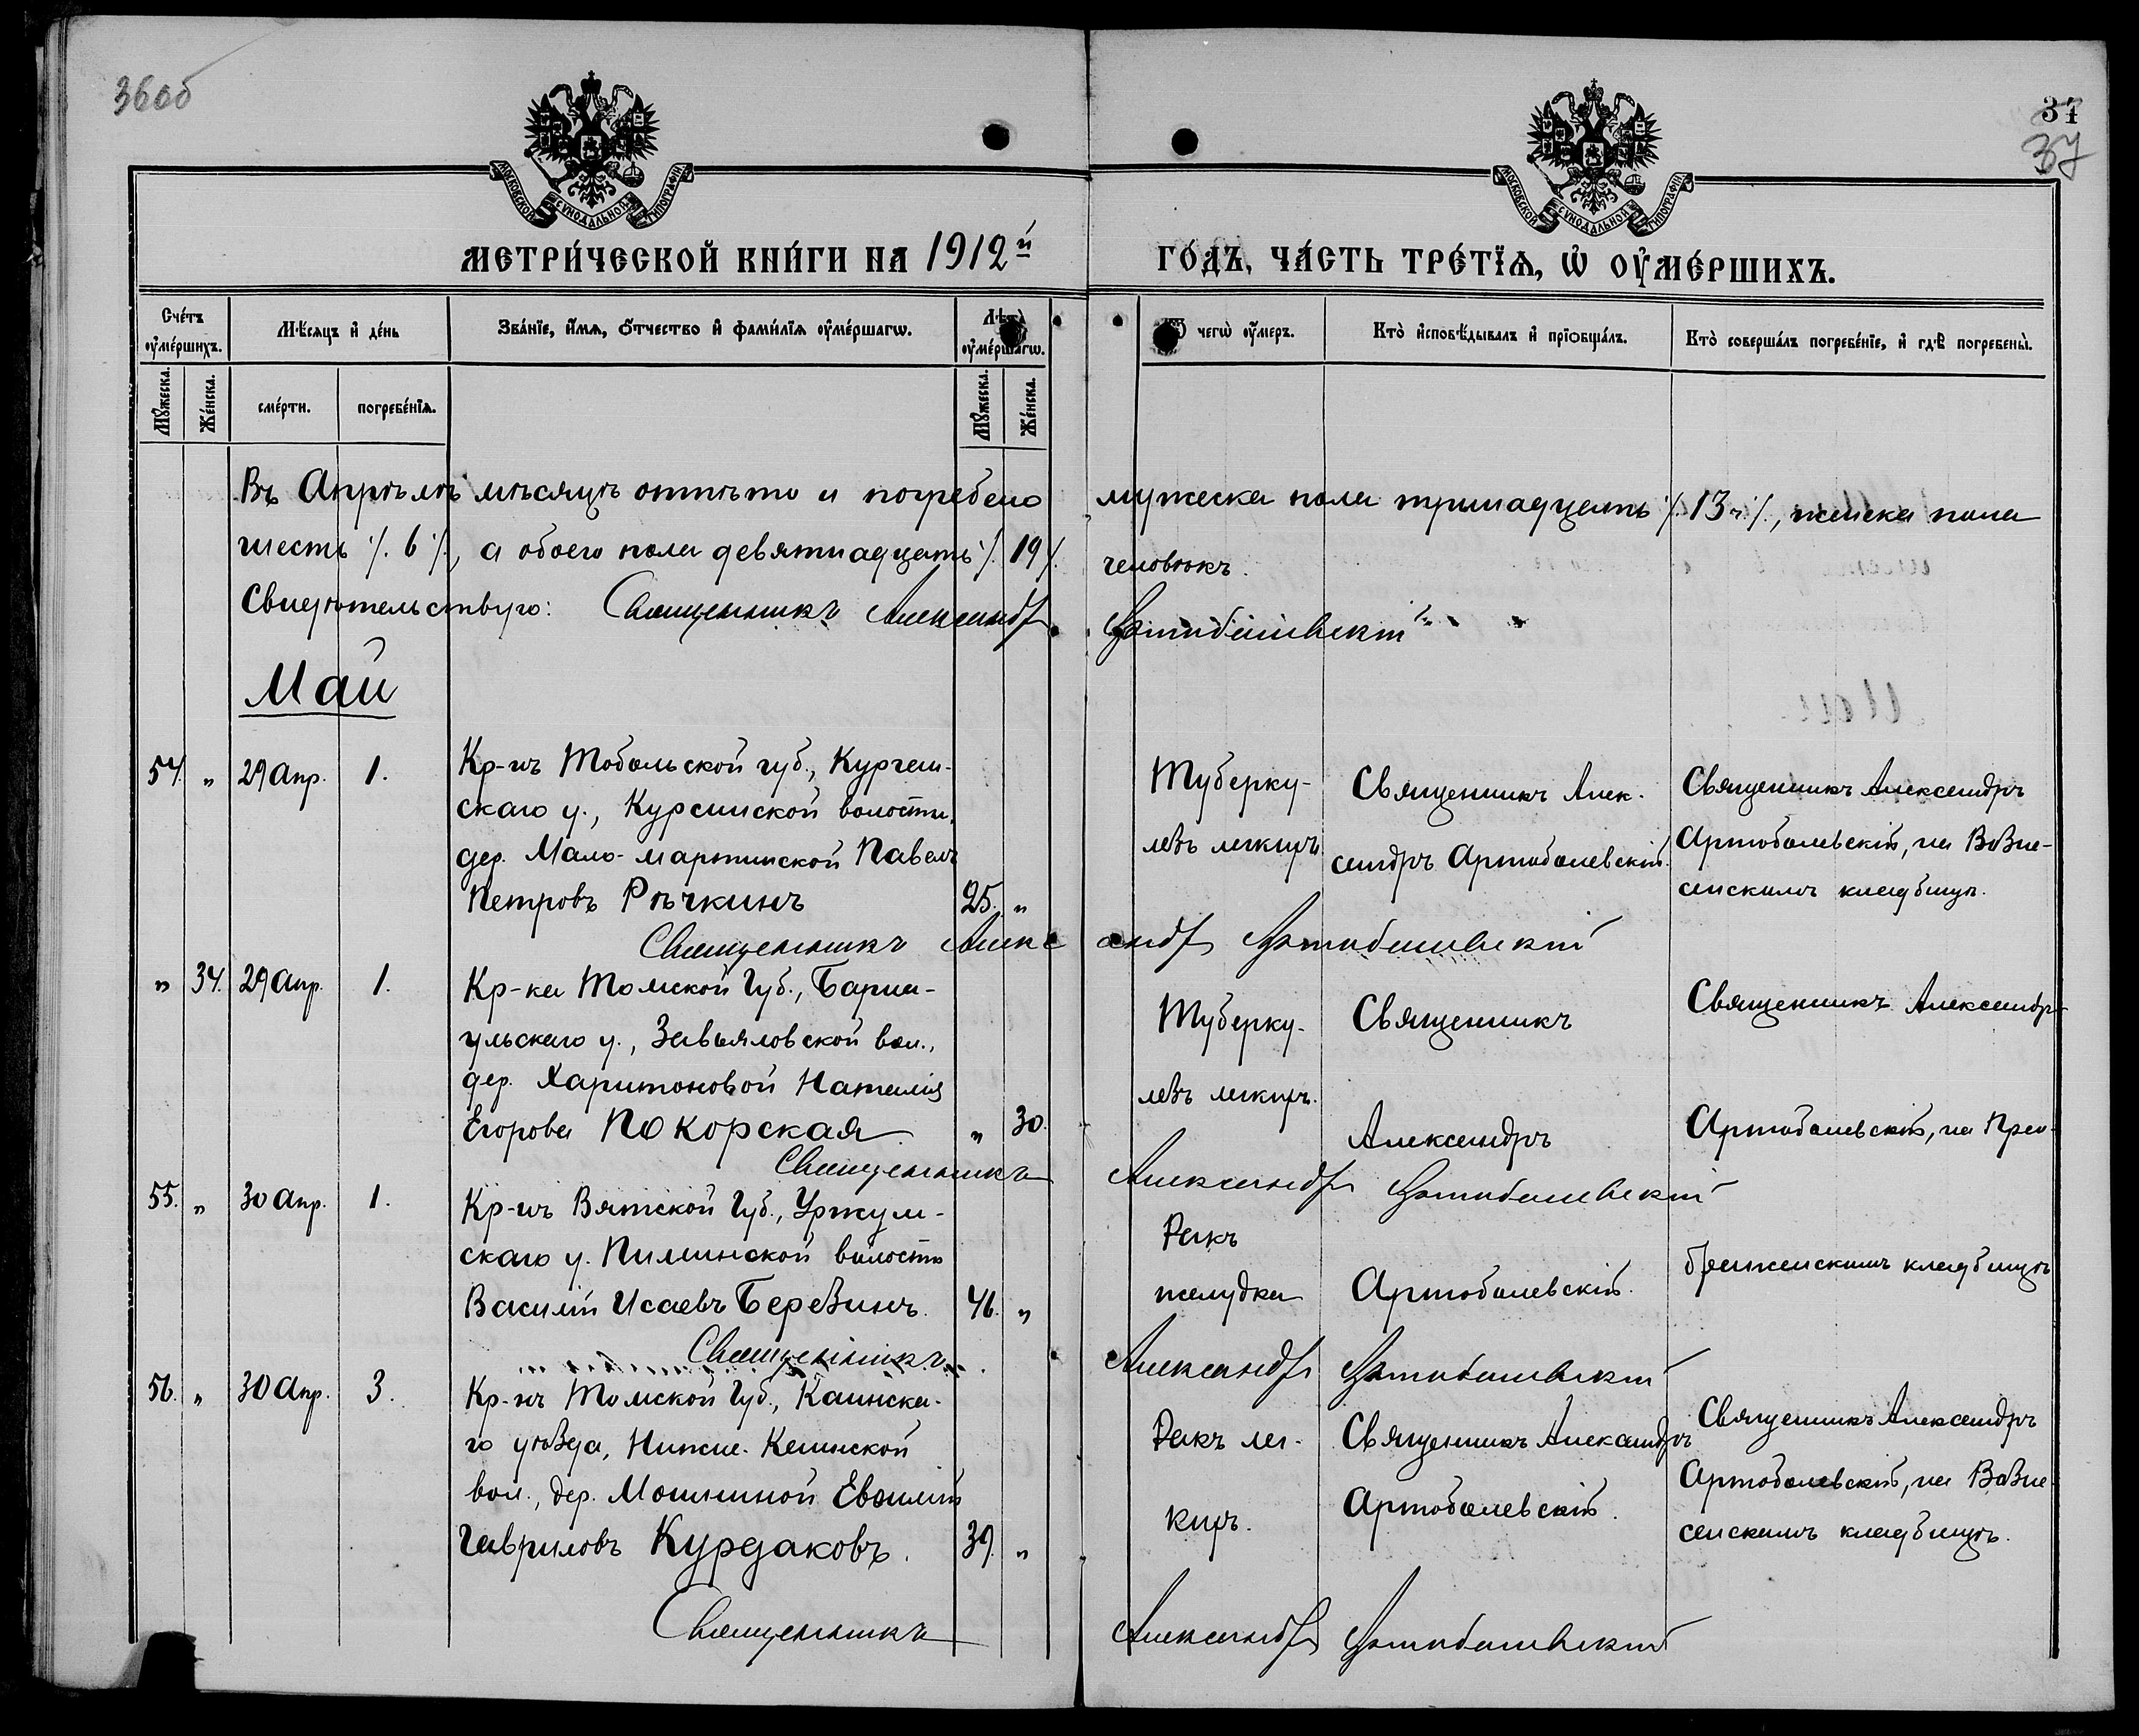 36об
37
37
МОСКОВСКОЙ СѴНОДАЛЬНОЙ ТИПОГРАФІИ
МОСКОВСКОЙ СѴНОДАЛЬНОЙ ТИПОГРАФІИ
МЕТРИ́ЧЕСКОЙ КНИ́ГИ НА 1912й ГО́ДЪ, ЧА́СТЬ ТРЕ́ТЇѦ, Ѡ҆ ОУ҆МЕ́РШИХЪ.
Сче́тъ оу҆ме́ршихъ.
Мѣ́сяцъ и҆ де́нь
Зва́нїе, и҆́мѧ, ѻ҆́тчество и҆ фами́лїѧ оу҆ме́ршагѡ.
Лѣта̀ оу҆ме́ршагѡ.
Ѿ чегѡ̀ оу҆́меръ.
Кто̀ и҆сповѣ́дывалъ и҆ прїѻбща́лъ.
Кто̀ соверша́лъ погребе́нїе, и҆ гдѣ̀ погребены̀.
Мꙋ́жеска.
Же́нска.
сме́рти.
погребе́нїѧ.
Мꙋ́жеска.
Же́нска.
Въ Апрѣлѣ мѣсяцѣ отпѣто и погребено мужеска пола тринадцать /.13./, женска пола
шесть /.6./, а обоего пола девятнадцать /.19./ человѣкъ.
Свидѣтельствую: Священникъ Александръ Артоболевскій
Май
54. „ 29 Апр. 1.
Кр-нъ Тобольской губ., Курган-
скаго у., волости,
дер. Мало-мартинской Павелъ
Петровъ Рѣчкинъ 25. „
Туберку-
лезъ легкихъ
Священникъ Алек-
сандръ Артоболевскій.
Священникъ Александръ
Артоболевскій, на Возне-
сенскомъ кладбищѣ.
Священникъ Александръ Артоболевскій
„ 34. 29 Апр. 1.
Кр-ка Томской Губ., Барна-
ульскаго у., Завьяловской вол.,
дер. Харитоновой Наталія
Егорова Покорская „ 30.
Туберку-
лезъ легкихъ.
Священникъ
Александръ
Священникъ Александръ
Артоболевскій, на Прео-
Священникъ Александръ Артоболевскій
55. „ 30 Апр. 1.
Кр-нъ Вятской Губ., Уржум-
скаго у. волости
Василій Исаевъ Березинъ. 46. „
Ракъ
желудка
Артоболевскій.
браженскомъ кладбищѣ
Священникъ Александръ Артоболевскій
56. „ 30 Апр. 3.
Кр-нъ Томской Губ., Каинска-
го уѣзда, Нижне-Каинской
вол., дер. Мошниной
Гавриловъ Курдаковъ. 39. „
Ракъ лег-
кихъ.
Священникъ Александръ
Артоболевскій.
Священникъ Александръ
Артоболевскій, на Возне-
сенскомъ кладбищѣ.
Священникъ Александръ Артоболевскій